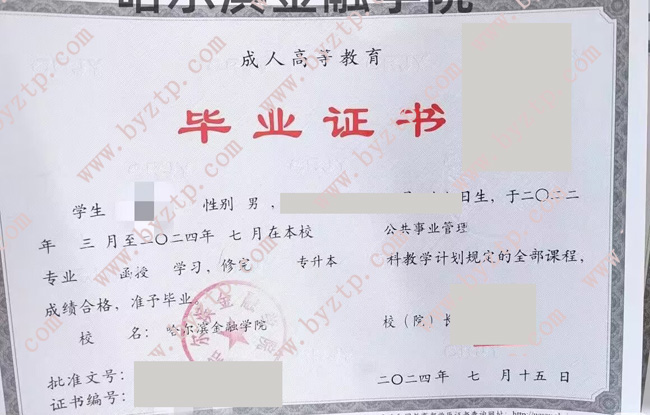 哈尔滨金融学院
成人高等教育
毕业证书
学生 性别 男， 日生，于二〇二二
年 三 月至二〇二四年 七 月在本校 公共事业管理
专业 函授 学习，修完 专升本 科教学计划规定的全部课程，
成绩合格，准予毕业。
校 名：哈尔滨金融学院 校（院）长
批准文号：
证书编号： 二〇二四年 七 月十五日
www.byztp.com